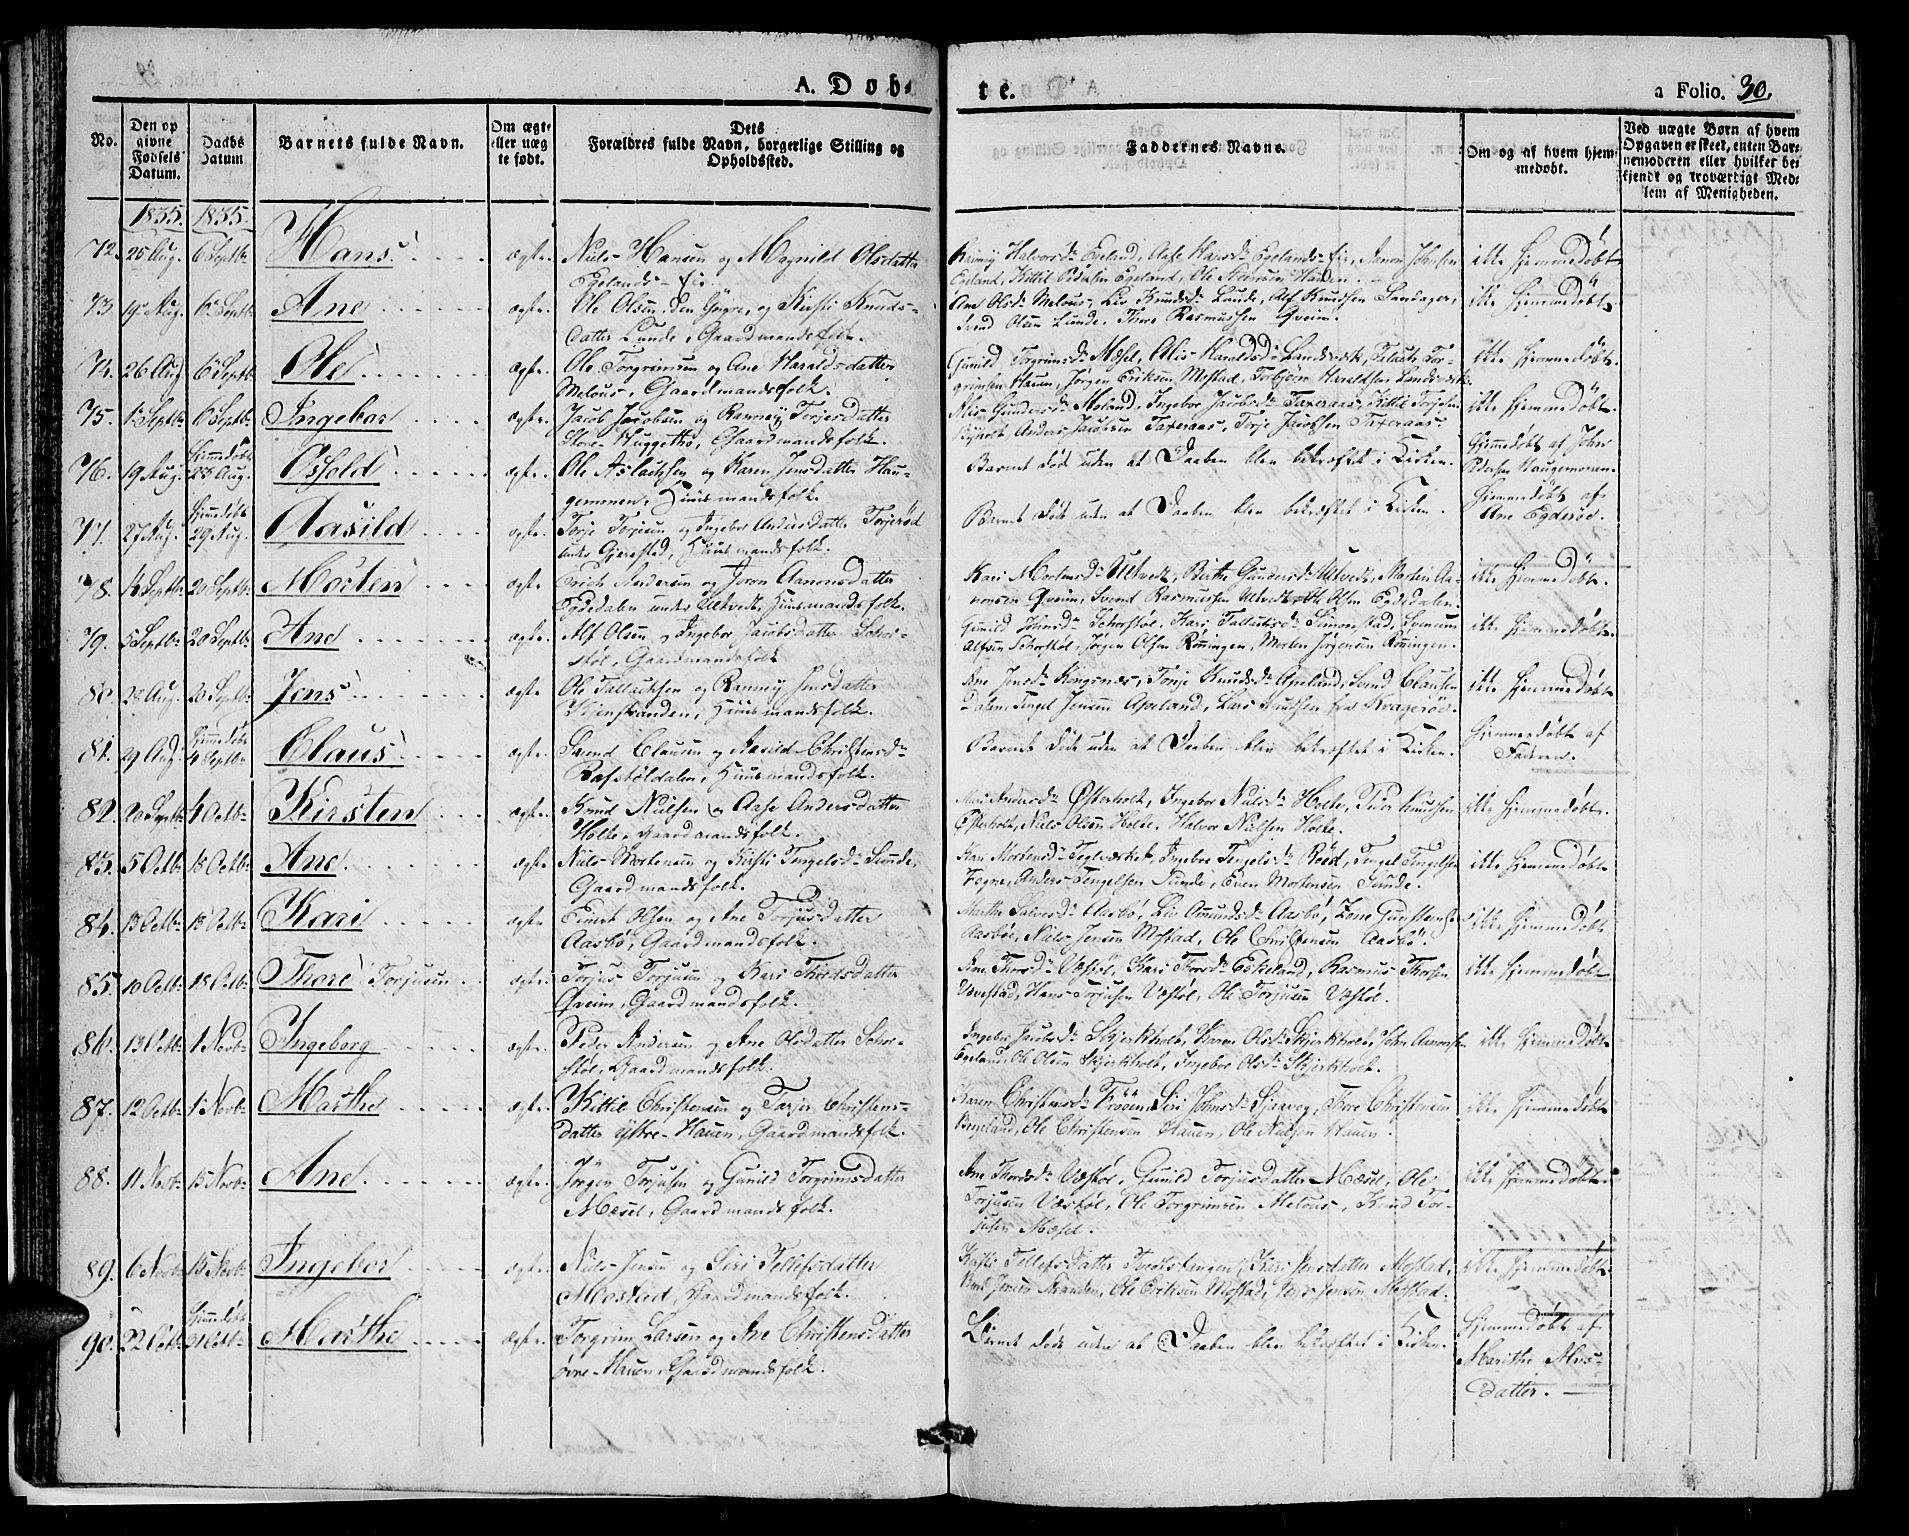 A. Døb-
te.
a Folio. 30.
No.
Den op
givne
Fødsels
Datum.
Daabs
Datum
Barnets fulde Navn.
Om ægt-
eller uæg
te født.
Dets
Forældres fulde Navn, borgerlige Stilling og
Opholdssted.
Faddernes Navne.
Om og af hvem hjem-
medøbt.
Ved uægte Børn af hvem
Opgaven er skeet, enten Bar-
nemoderen eller hvilket be-
kjendt og troværdigt Med-
lem af Menigheden.
1835. 1835.
72. 25 Aug. 6 Septbr Hans ægte. Niels Hansen og Magnild Olsdatter
Egelands-
Halvorsdr Egeland, Aase Hansdr Egelands- Aanon Johnsen
Egeland, Kittil Pedersen Egeland, Ole
ikke hjemmedøbt
73. 19 Aug. 6 Septbr Ane ægte. Ole Olsen, den Yngre, og Kirsti Knuds-
datter Lunde, Gaardmandsfolk.
Ane Olsdr Melaas, Liv Knudsdr Lunde, Alf Knudsen Sandager,
Svend Olsen Lunde, Thore Rasmussen Qveim.
ikke hjemmedøbt
74. 26 Aug. 6 Septbr Ole ægte. Ole Torgrimsen og Ane Haraldsdatter
Melaas, Gaardmandsfolk.
Gunild Torgrimsdr Mæsel, Alis Haraldsdr Landsverk, Tor-
grimsen Hauen, Jørgen Eriksen Mostad, Tobjørn Haraldsen Landsverk.
ikke hjemmedøbt
75. 1 Septbr 6 Septbr Ingebor ægte. Jacob Jacobsen og Ranney Torjesdatter
Store- Gaardmandsfolk.
Alis Gundersdr Moland, Ingebor Jacobsdr Taxeraas, Kittil Torjesen
Anders Jacobsen Taxeraas, Torje Jacobsen Taxeraas.
ikke hjemmedøbt.
76. 19 Aug. Hjemmedøbt 23 Aug. Osfold ægte. Ole Aslachsen og Karen Jensdatter Hau-
gemonen, Huusmandsfolk.
Barnet døde uden at Daaben blev bekræftet i Kirken.
Hjemmedøbt af John
Pedersen Haugemonen.
77. 27 Aug. Hjemmedøbt 29 Aug. Aasild ægte. Torje Torjesen og Ingebor Andersdatter Torjerød
under Gjerrestad, Huusmandsfolk.
Barnet døde uden at Daaben blev bekræftet i Kirken.
Hjemmedøbt af
Ane Egderød.
78. Septbr 20 Septbr Morten ægte. Erich Andersen og Joron Aanonsdatter
Egdedalen under Ultvedt, Huusmandsfolk.
Kari Mortensdr Ultvedt, Berthe Gundersdr Ultvedt, Morten Aa-
nonsen Qveim, Svend Rasmussen Ultvedt, Ole Olsen Egdedalen.
ikke hjemmedøbt.
79. 5 Septbr 20 Septbr Ane ægte. Alf Olsen og Ingebor Jacobsdatter Schor-
støl, Gaardmandsfolk
Gunild Johnsdr Schorstøl, Kari Tallaksdr Simonstad, Svenum
Alfsen Schorstøl, Jørgen Olsen Rønningen, Morten Jørgensen Rønningen.
ikke hjemmedøbt.
80. 22 Aug. 20 Septbr Jens ægte. Ole Tallachsen og Ranney Jensdatter
Huusmandsfolk.
Ane Jensdr Kongsnæs, Torje Knudsdr Apeland, Svend Clausen
Dalen, Tengel Jensen Apeland, Lars Knudsen fra Kragerøe.
ikke hjemmedøbt
81. 29 Aug. Hjemmedøbt 4 Septbr Claus ægte. Svend Clausen og Aasild Christensdr
Rafstøldalen, Huusmandsfolk.
Barnet døde uden at Daaben blev bekræftet i Kirken.
Hjemmedøbt af
Faderen.
82. 20 Septbr 4 Octbr Kirsten ægte. Knud Nielsen og Aase Andersdatter
Holte, Gaardmandsfolk.
Mari Andersdr Østerholt, Ingebor Nielsdr Holte, Peder Knudsen
Østerholt, Niels Olsen Holte, Halvor Nielsen Holte.
ikke hjemmedøbt.
83. 5 Octbr 18 Octbr Ane ægte. Niels Mortensen og Kirsti Tengelsdr Sunde,
Gaardmandsfolk.
Mortensdr Teglværket, Ingebor Tengelsdr Røed, Tengel Tengelsen
Fogne, Anders Tengelsen Sunde, Even Mortensen Sunde.
ikke hjemmedøbt
84. 13 Octbr 18 Octbr Kari ægte. Einert Olsen og Ane Torjusdatter
Aasbø, Gaardmandsfolk.
Marthe Salvesdr Aasbø, Liv Amundsdr Aasbø, Gunstensen
Aasbøe, Niels Jensen Mostad, Ole Christensen Aasbø.
ikke hjemmedøbt
85. 10 Octbr 18 Octbr Thore Torjusen ægte. Torjus Torjusen og Kari Thordsdatter
Qveim, Gaardmandsfolk.
Ane Thorsdr Væstøl, Kari Thorsdr Eskeland, Rasmus Thorsen
Vævestad, Hans Torjusen Væstøl, Ole Torjusen Væstøl.
ikke hjemmedøbt
86. 13 Octbr 1 Novbr Ingeborg ægte. Peder Andersen og Ane Olsdatter Schor-
støl, Gaardmandsfolk.
Ingebor Jacobsdr Skjerkholt, Karen Olsdr Skjerkholt, John Aanonsen
Egeland, Ole Olsen Skjerkholt, Ingebor Olsdr Skjerkholt.
ikke hjemmedøbt
87. 12 Octbr 1 Novbr Marthe ægte. Kittil Christensen og Torjer Christens-
datter ytre-Hauen, Gaardmandsfolk.
Karen Christensdr Frøen, Siri Johnsdr Thore Christensen
Berqeland, Ole Christensen Hauen, Ole Nielsen Hauen.
ikke hjemmedøbt
88. 11 Novbr 15 Novbr Ane ægte. Jørgen Torjusen og Gunild Torgrimsdatter
Mæsel, Gaardmandsfolk.
Ane Thordsdr Væstøl, Gunild Torjusdatter Mæsel, Ole
Torjusen Væstøl, Ole Torgrimsen Melaas, Knud Tor-
jusen Mæsel.
ikke hjemmedøbt
89. 6 Novbr 15 Novbr Ingebor ægte. Niels Jensen og Siri Tellefsdatter
Mostad, Gaardmandsfolk.
Kirstie Tellefsdatter Tvedtstangen, Kari Jensdatter Mostad,
Jensen Stranden, Ole Eriksen Mostad, Jens Jensen Mostad.
ikke hjemmedøbt.
90. 22 Octbr Hjemmedøbt Octbr Marthe ægte. Torgrim Larsen og Ane Christensdatter
øvre-Hauen, Gaardmandsfolk.
Barnet døde uden at Daaben blev bekræftet i Kirken.
Hjemmedøbt af
Marithe Alvs-
datter.